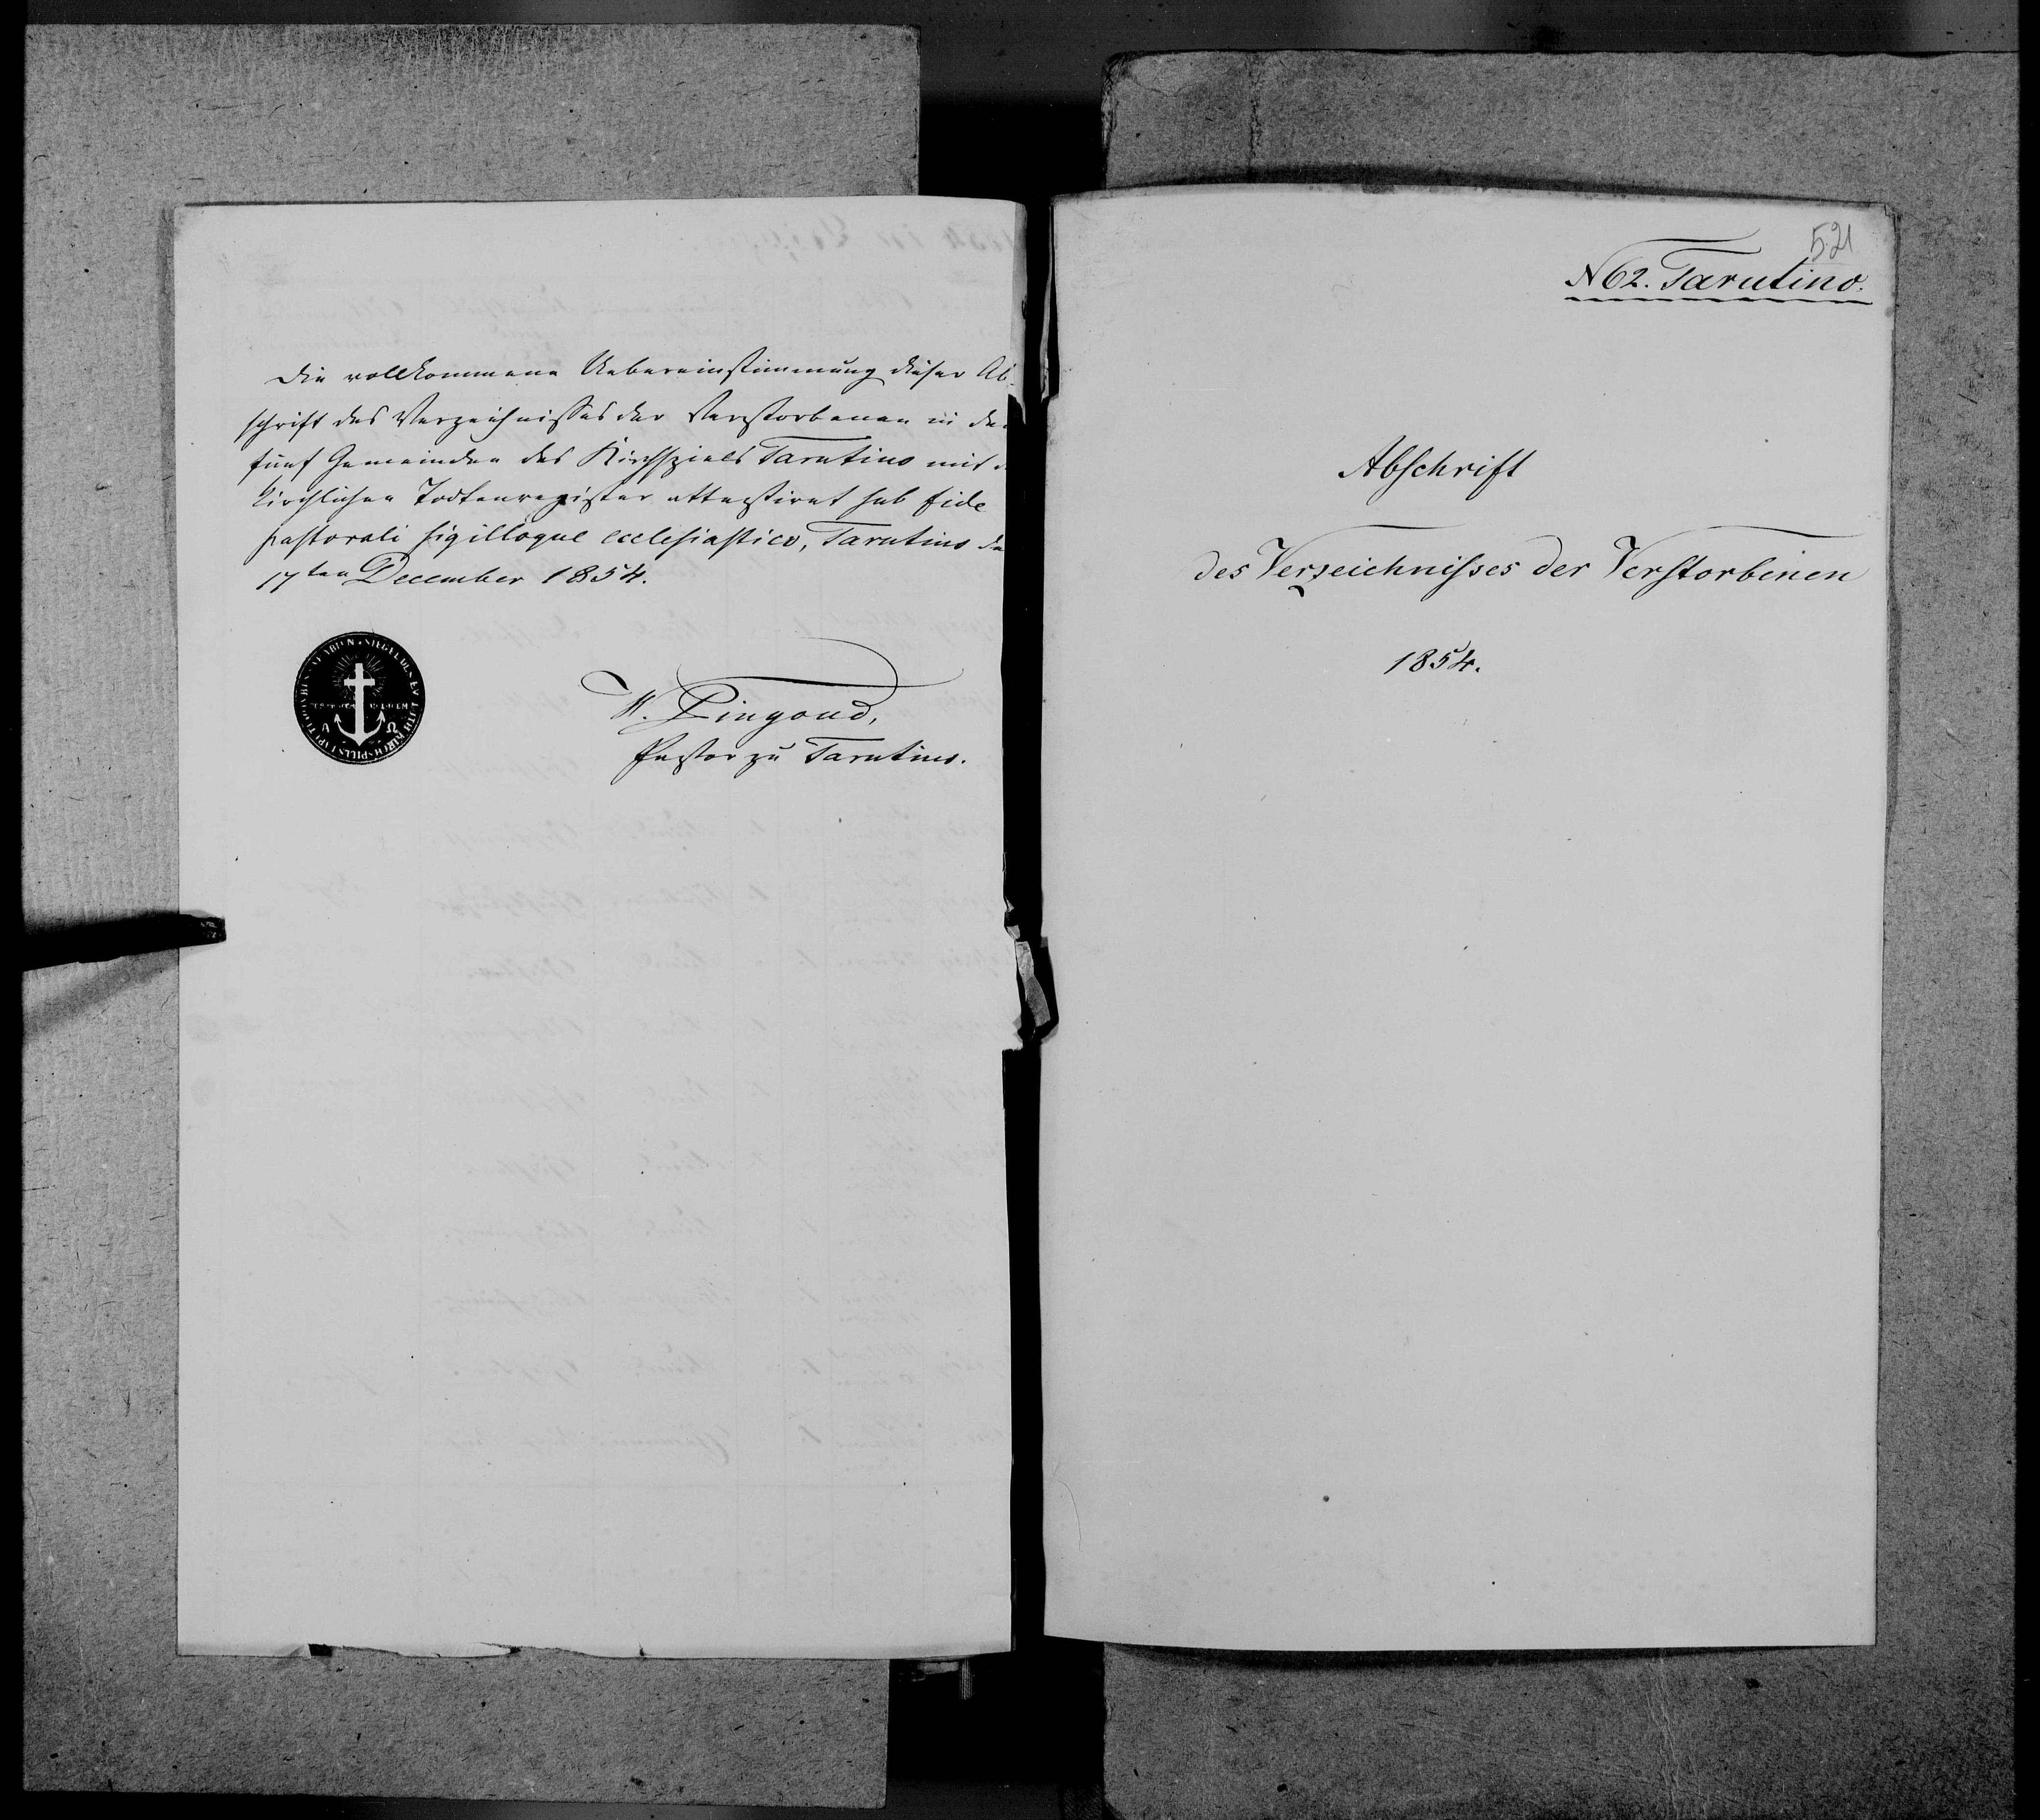 Die vollkommene Uebereinstimmung dieser Ab-
schrift des Verzeichnisses der Verstorbenen in de
fünf Gemeinden des Kirchspiels Tarutino mit
kirchlichen Todtenregister attestiret sub fide
pastorali sigilloque ecclesiastico, Tarutino de
17ten December 1854.
W. Pingoud,
Pastor zu Tarutino.
521
N 62. Tarutino.
Abschrift
des Verzeichnisses der Verstorbenen
1854.